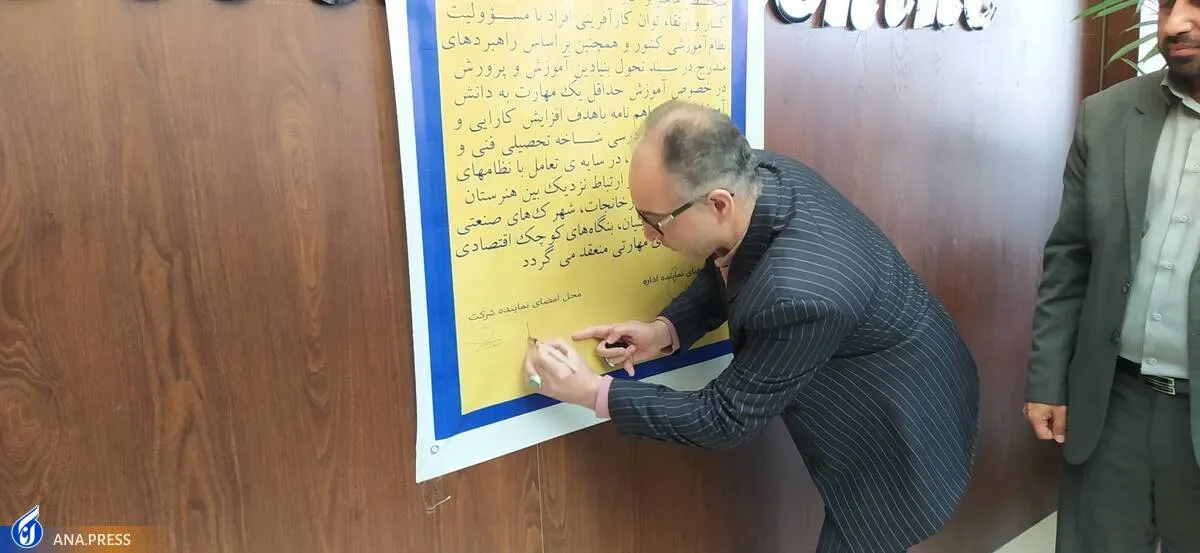 کار و ارتقاء توان کارآفرینی افراد با مسؤولیت
نظام آموزشی کشور و همچنین بر اساس راهبردهای
مندرج در سند تحول بنیادین آموزش و پرورش
در خصوص آموزش حداقل یک مهارت به دانش
هم نامه باهدف افزایش کارایی و
درسی شاخه تحصیلی فنی و
، در سایه ی تعامل با نظامهای
ارتباط نزدیک بین هنرستان
رخانجات، شهرک‌های صنعتی
بنگاه‌های کوچک اقتصادی
مهارتی منعقد می گردد
نماینده اداره
محل امضای نماینده شرکت
ANA.PRESS